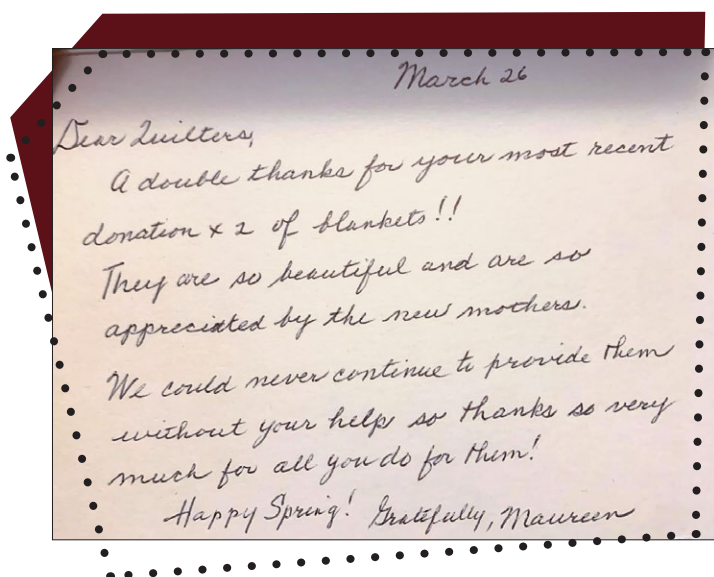 March 26
Dear Quilters,
A double thanks for your most recent
donation x 2 of blankets!!
They are so beautiful and are so
appreciated by the new mothers.
We could never continue to provide them
without your help so thanks so very
much for all you do for them!
Happy Spring! Gratefully, Maureen